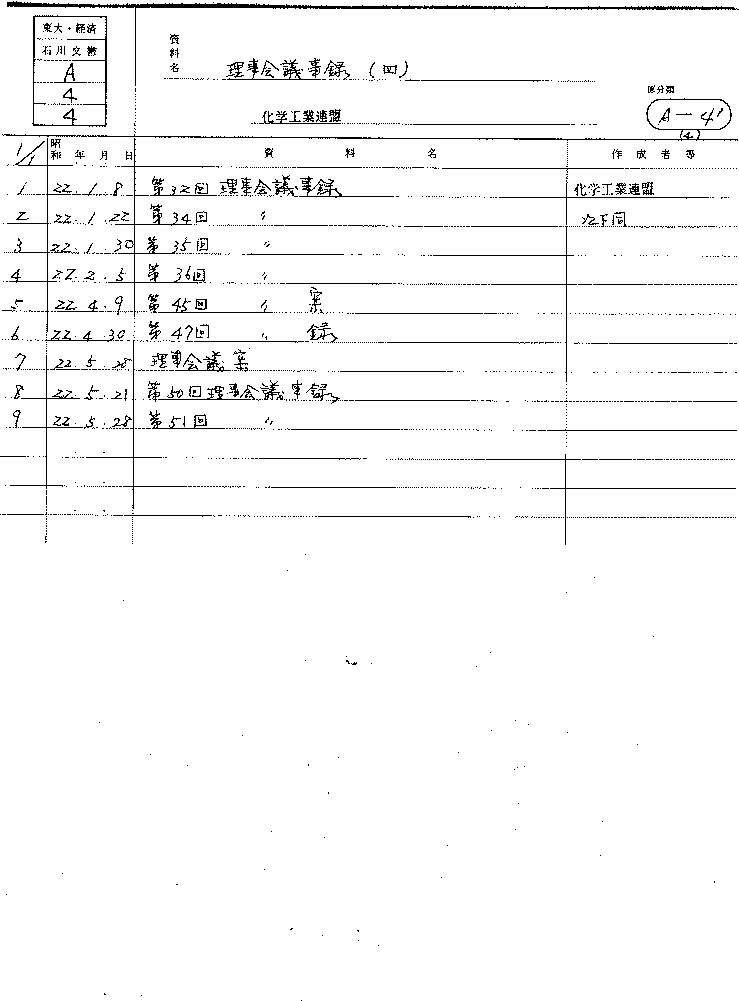 東大・経済
石川文書
A
4
4
資料名
理事会議事録 (四)
化学工業連盟
原分類
A-4'
(4)
1/1 昭和 年 月 日 資料名 作成者等
1 22.1.8 第32回 理事会議事録 化学工業連盟
2 22.1.22 第34回 〃 以下同
3 22.1.30 第35回 〃
4 22.2.5 第36回 〃
5 22.4.9 第45回 〃 案
6 22.4.30 第47回 〃 録
7 22.5.28 理事会議案
8 22.5.21 第50回理事会議事録
9 22.5.28 第51回 〃